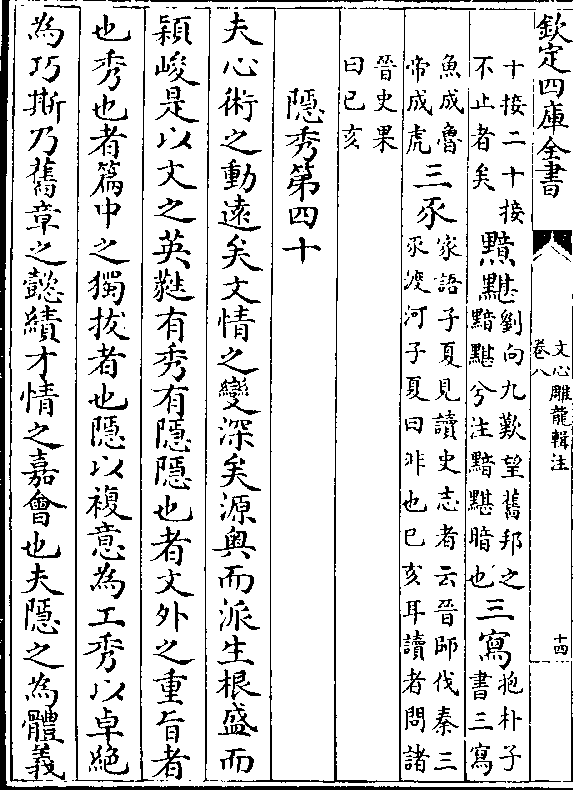 欽定四庫全書
文心雕龍輯注
卷八
十四
十接二十接
不止者矣
黯黮
劉向九歎望舊邦之
黯黮兮注黯黮暗也
三寫
抱朴子
書三寫
魚成魯
帝成虎
三豕
家語子夏見讀史志者云晉師伐秦三
豕渡河子夏曰非也已亥耳讀者問諸
晉史果
曰已亥
隱秀第四十
夫心術之動遠矣文情之變深矣源奥而派生根盛而
穎峻是以文之英蕤有秀有隱隱也者文外之重旨者
也秀也者篇中之獨拔者也隱以複意為工秀以卓絶
為巧斯乃舊章之懿績才情之嘉會也夫隱之為體義